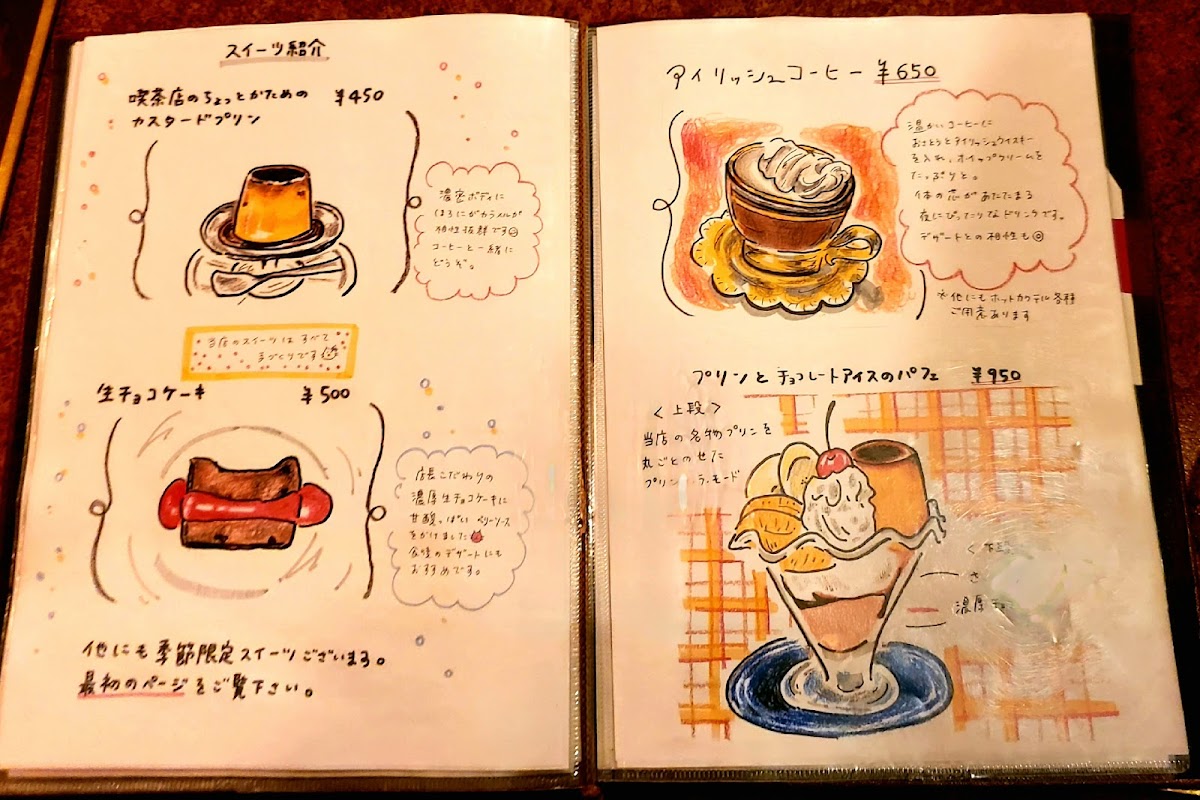 スイーツ紹介
喫茶店のちょっとかための ¥450
カスタードプリン
濃密ボディに
ほろにがカラメルが
相性抜群です
コーヒーと一緒に
どうぞ。
当店のスイーツはすべて
手づくりです
生チョコケーキ ¥500
店長こだわりの
濃厚生チョコケーキに
甘酸っぱいベリーソース
をかけました
食後のデザートにも
おすすめです。
他にも季節限定スイーツございます。
最初のページをご覧下さい。
アイリッシュコーヒー ¥650
温かいコーヒーに
おさとうとアイリッシュウイスキー
を入れ、ホイップクリームを
たっぷりと。
体の芯があたたまる
夜にぴったりなドリンクです。
デザートとの相性も◎
※他にもホットカクテル各種
ご用意あります
プリンとチョコレートアイスのパフェ ¥950
<上段>
当店の名物プリンを
丸ごとのせた
プリン・ラ・モード
濃厚チョ